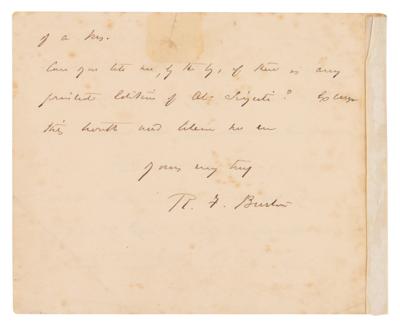 of a Ms.
Can you tell me, by the by, if there is any
printed Edition of Al Siyuti? Excuse
this trouble and believe me
yours very truly
R. F. Burton